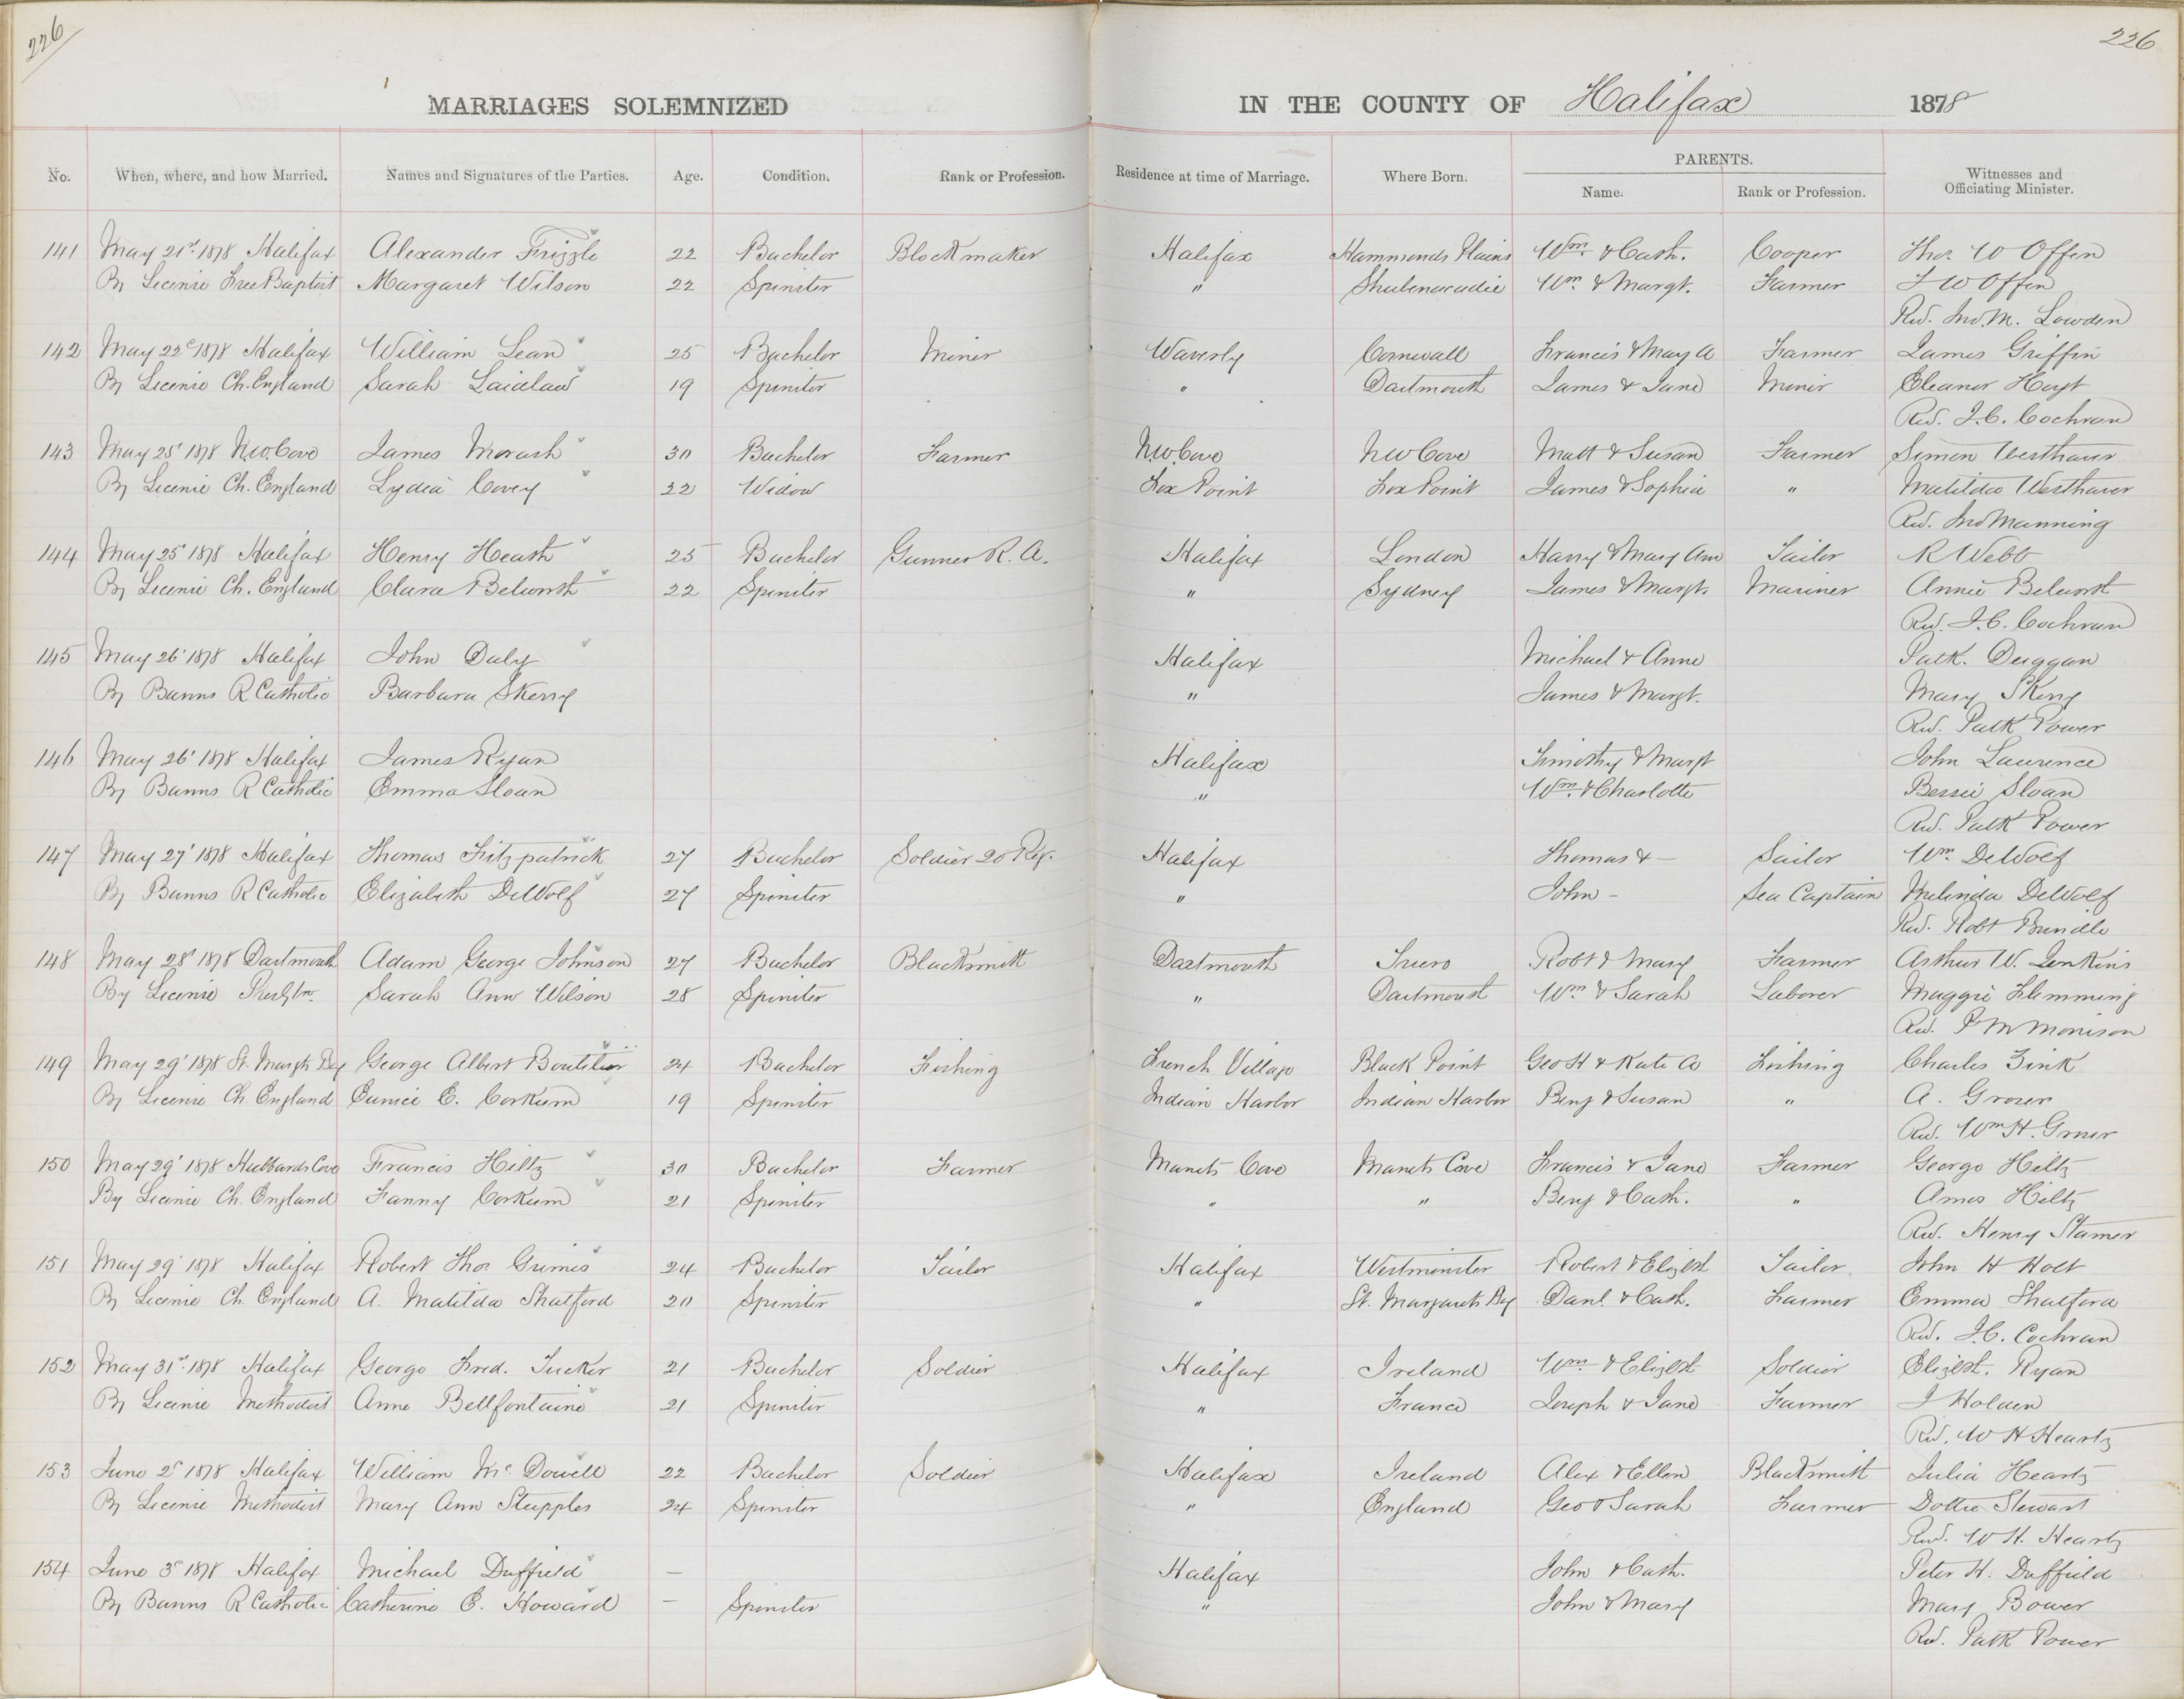 226
226
MARRIAGES SOLEMNIZED IN THE COUNTY OF Halifax 1878
No. When, where, and how Married. Names and Signatures of the Parties. Age. Condition. Rank or Profession. Residence at time of Marriage. Where Born. PARENTS. Name. Rank or Profession. Witnesses and Officiating Minister.
141 May 21st 1878 Halifax Alexander Frizzle 22 Bachelor Blockmaker Halifax Hammonds Plains Wm. & Cath. Cooper Thos. W Offen
By License Free Baptist Margaret Wilson 22 Spinster " Shubenacadie Wm. & Margt. Farmer J W Offen
Rev. Jno. M. Lowden
142 May 22d 1878 Halifax William Lean 25 Bachelor Miner Waverly Cornwall Francis & Mary A Farmer James Griffin
By License Ch. England Sarah Laidlaw 19 Spinster " Dartmouth James & Jane Miner Eleanor Hoyt
Rev. J. C. Cochran
143 May 25 1878 N.W. Cove James Morash 30 Bachelor Farmer N.W Cove N W Cove Matt & Susan Farmer Simon Westhaver
By License Ch. England Lydia Covey 22 Widow Fox Point Fox Point James & Sophia " Matilda Westhaver
Rev. Jno Manning
144 May 25 1878 Halifax Henry Heath 25 Bachelor Gunner R. A. Halifax London Harry & Mary Ann Tailor R Webb
By License Ch. England Clara Belworth 22 Spinster " Sydney James & Margt. Mariner Annie Belworth
Rev. J. C. Cochran
145 May 26 1878 Halifax John Daly Halifax Michael & Anne Patk. Duggan
By Banns R Catholic Barbara Skerry " James & Margt. Mary Skerry
Rev. Patk Power
146 May 26 1878 Halifax James Ryan Halifax Timothy & Margt John Laurence
By Banns R Catholic Emma Sloan " Wm. & Charlotte Bessie Sloan
Rev. Patk Power
147 May 27 1878 Halifax Thomas Fitzpatrick 27 Bachelor Soldier 20 Reg. Halifax Thomas & — Sailor Wm. DeWolf
By Banns R Catholic Elizabeth DeWolf 27 Spinster " John - Sea Captain Melinda DeWolf
Rev. Robt Brindle
148 May 28 1878 Dartmouth Adam George Johnson 27 Bachelor Blacksmith Dartmouth Truro Robt & Mary Farmer Arthur W. Jenkins
By License Presbytn. Sarah Ann Wilson 28 Spinster " Dartmouth Wm & Sarah Laborer Maggie Flemming
Rev. P M Morrison
149 May 29 1878 St. Margts Bay George Albert Boutilier 24 Bachelor Fishing French Village Black Point Geo H & Kate A Fishing Charles Zink
By License Ch England Eunice E. Corkum 19 Spinster Indian Harbor Indian Harbor Benj & Susan " A. Groser
Rev. Wm H. Groser
150 May 29 1878 Hubbards Cove Francis Hiltz 30 Bachelor Farmer Manets Cove Manets Cove Francis & Jane Farmer George Hiltz
By License Ch. England Fanny Corkum 21 Spinster " " Benj & Cath. " Amos Hiltz
Rev. Henry Stamer
151 May 29 1878 Halifax Robert Thos. Grimes 24 Bachelor Tailor Halifax Westminster Robert & Elizbth Tailor John H Holt
By License Ch. England A. Matilda Shatford 20 Spinster " St. Margarets Bay Danl. & Cath. Farmer Emma Shatford
Rev. J. C. Cochran
152 May 31st 1878 Halifax George Fred. Tucker 21 Bachelor Soldier Halifax Ireland Wm & Elizbth Soldier Elizbth. Ryan
By License Methodist Anne Bellfontaine 21 Spinster " France Joseph & Jane Farmer J Holden
Rev. W H Heartz
153 June 2d 1878 Halifax William Mc Dowell 22 Bachelor Soldier Halifax Ireland Alex & Ellen Blacksmith Julia Heartz
By License Methodist Mary Ann Stupples 24 Spinster " England Geo & Sarah Farmer Dottie Stewart
Rev. W H. Heartz
154 June 3d 1878 Halifax Michael Duffield — Halifax John & Cath. Peter H. Duffield
By Banns R Catholic Catherine E. Howard — Spinster " John & Mary Mary Bower
Rev. Patk Power